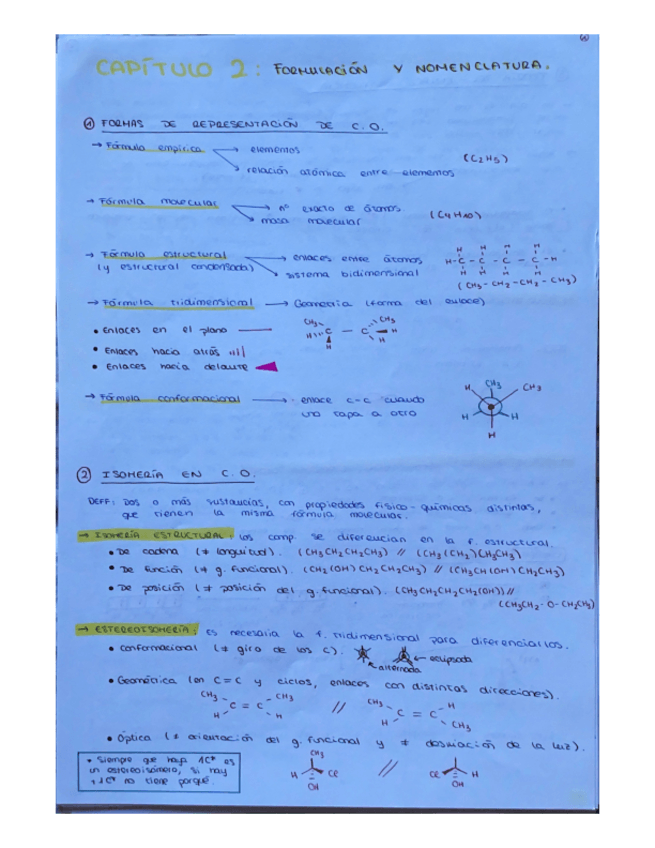 CAPÍTULO 2: FORMULACIÓN Y NOMENCLATURA.
① FORMAS DE REPRESENTACIÓN DE C.O.
→ Fórmula empírica → elementos
→ relación atómica entre elementos (C2H5)
→ Fórmula molecular → nº exacto de átomos
→ masa molecular (C4H10)
→ Fórmula estructural → enlaces entre átomos
(y estructural condensada) → sistema bidimensional
H H H H
H-C-C-C-C-H
H H H H
(CH3-CH2-CH2-CH3)
→ Fórmula tridimensional → Geometría (forma del enlace)
• Enlaces en el plano
• Enlaces hacia atrás
• Enlaces hacia delante
CH3 CH3
H C — C H
H H
→ Fórmula conformacional → enlace C-C cuando
uno tapa a otro
H CH3 CH3
H H
H
② ISOMERÍA EN C.O.
DEFF: Dos o más sustancias, con propiedades físico-químicas distintas,
que tienen la misma fórmula molecular.
→ ISOMERÍA ESTRUCTURAL: los comp. se diferencian en la f. estructural.
• De cadena (≠ longitud). (CH3CH2CH2CH3) // (CH3(CH3)CH3CH3)
• De función (≠ g. funcional). (CH2(OH)CH2CH2CH3) // (CH3CH(OH)CH2CH3)
• De posición (≠ posición del g. funcional). (CH3CH2CH2CH2(OH)) //
(CH3CH2-O-CH2CH3)
→ ESTEREOISOMERÍA: es necesaria la f. tridimensional para diferenciarlos.
• Conformacional (≠ giro de los C). ← eclipsada
alternada
• Geométrica (en C=C y ciclos, enlaces con distintas direcciones).
CH3 CH3 CH3 H
C = C // C = C
H H H CH3
• Óptica (≠ orientación del g. funcional y ≠ desviación de la luz).
• Siempre que haya 1C* es
un estereoisómero, si hay
+1C* no tiene porqué.
CH3
H Cl // Cl H
OH OH